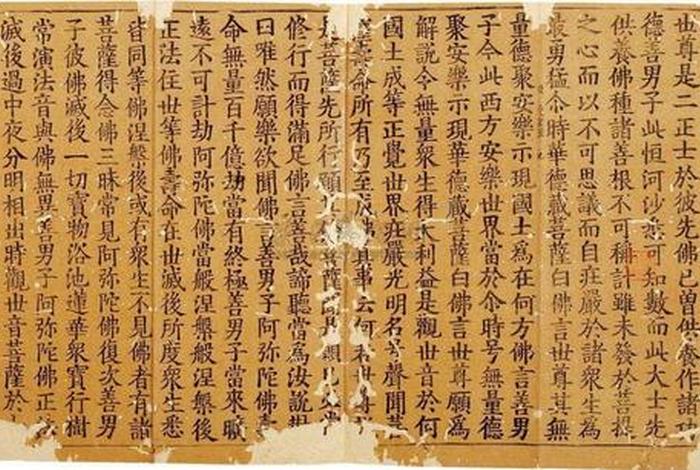 世尊是二正士於彼先佛已曾供養作諸功
德善男子此恒河沙悉可知數而此大士先
供養佛種諸善根不可稱計雖未發於菩提
之心而以不可思議而自莊嚴於諸衆生為
最勇猛尒時華德藏菩薩白佛言世尊其無
量德聚安樂示現國土為在何方佛言善男
子今此西方安樂世界當於尒時号無量德
聚安樂示現華德藏菩薩白佛言世尊願為
解說令無量衆生得大利益是觀世音於何
國土成等正覺世界莊嚴光明名号聲聞菩
薩壽命所有乃至成佛其事云何若世尊
是菩薩先所行願菩薩聞是願
修行而得滿足佛言善哉諦聽當為汝說對
曰唯然願樂欲聞佛言善男子阿弥陀佛壽
命無量百千億劫當有終極善男子當來曠
遠不可計劫阿弥陀佛當般涅槃般涅槃後
正法住世等佛壽命在世滅後所度衆生悉
皆同等佛涅槃後或有衆生不見佛者有諸
菩薩得念佛三昧常見阿弥陀佛復次善男
子彼佛滅後一切寶物浴池蓮華衆寶行樹
常演法音與佛無異善男子阿弥陀佛正法
滅後過中夜分明相出時觀世音菩薩於